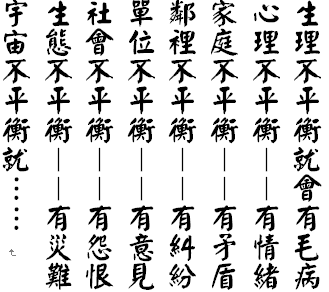 生理不平衡就會有毛病
心理不平衡——有情緒
家庭不平衡——有矛盾
鄰裡不平衡——有糾紛
單位不平衡——有意見
社會不平衡——有怨恨
生態不平衡——有災難
宇宙不平衡就……